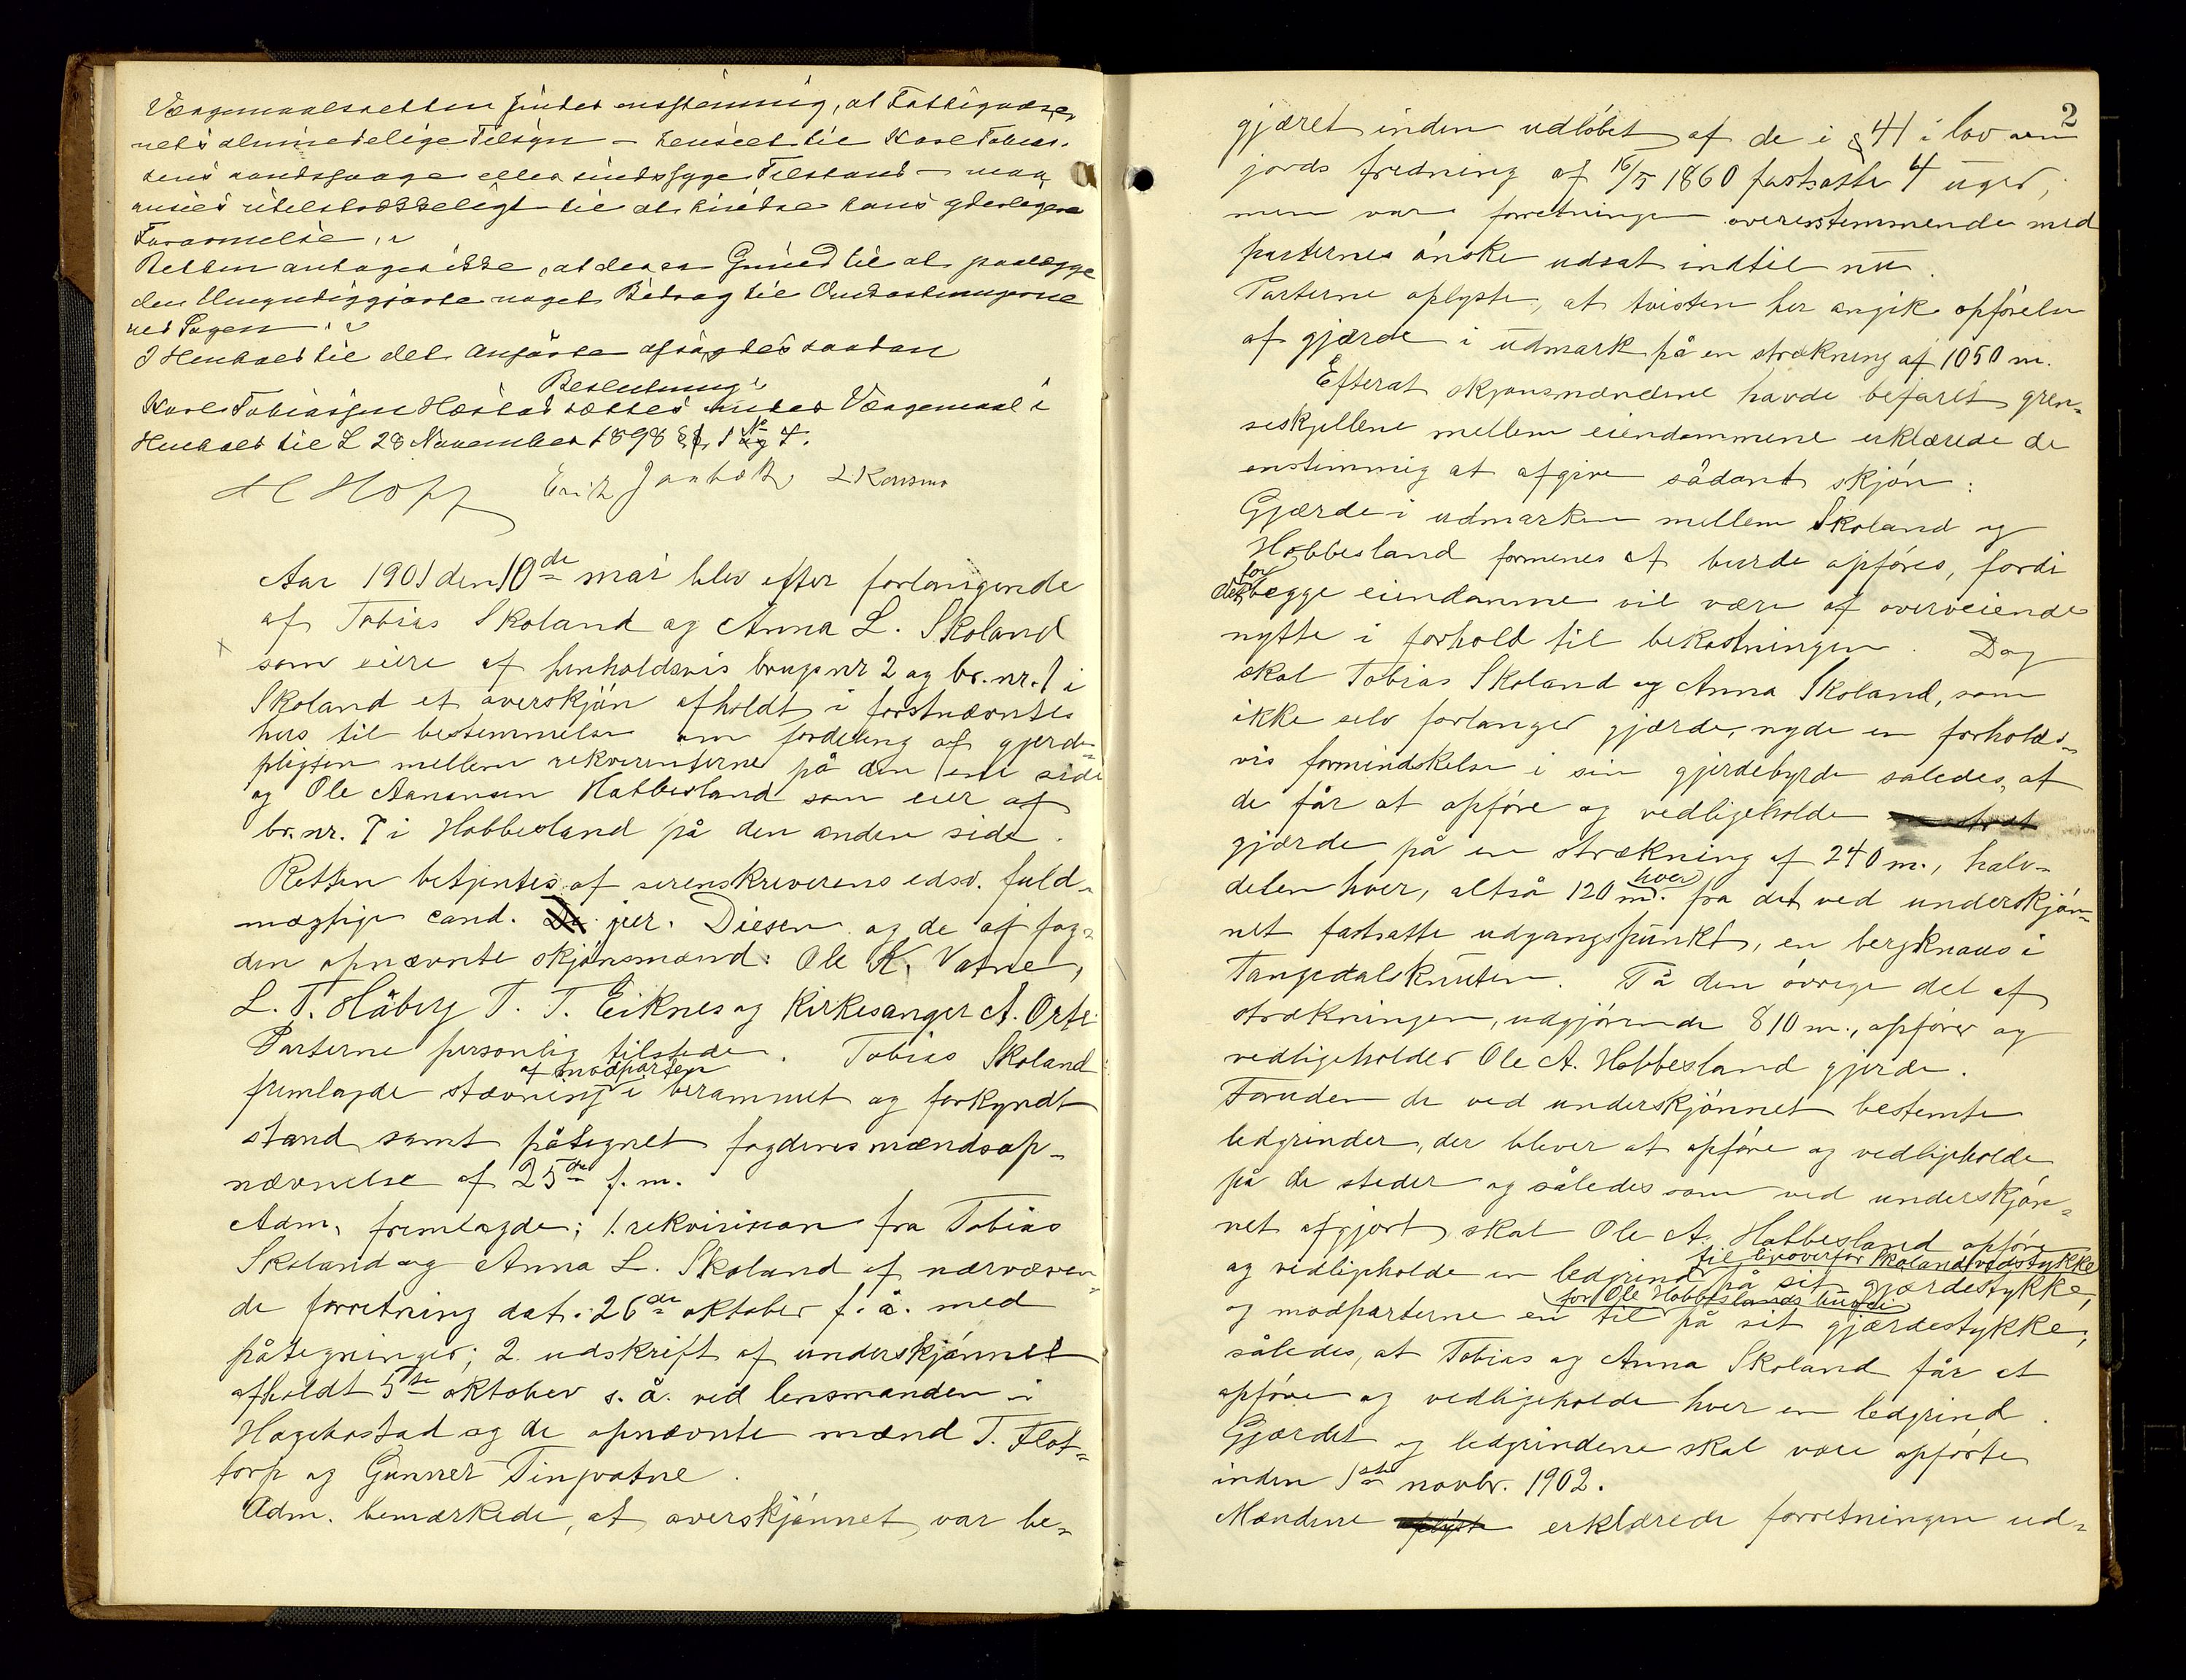 Værgemaalsretten finder enstemmig, at Fattigvæse-
nets almindelige Tilsyn – henseet til Karl Tobias-
sens aandssvage eller sindssyge Tilstand – maa
ansees utilstrækkeligt til at hindre hans yderligere
Forarmelse.
Retten antager ikke, at der er Grund til at paalægge
den Umyndiggjorte noget Bidrag til Omkostningerne
ved Sagen.
I Henhold til det Anførte afsagdes saadan
Beslutning:
Karl Tobiassen Hæstad sættes under Værgemaal i
Henhold til L 28 November 1898 § 1 No 4.
H Hopp Erik Jaabæk L Konsmo
Aar 1901 den 10de mai blev efter forlangende
af Tobias Skoland og Anna L. Skoland
som eiere af henholdsvis brugsnr 2 og br. nr. 1 i
Skoland et overskjön afholdt i førstnævntes
hus til bestemmelse om fordeling af gjerde-
pligten mellem rekvirenterne på den ene side
og Ole Aanensen Hobbesland som eier af
br. nr. 7 i Hobbesland på den anden side.
Retten betjentes af sorenskriverens edsv. fuld-
mægtige cand. jur. Diesen og de af fog-
den opnævnte skjönsmænd: Ole K. Vatne,
L. T. Håberg T. T. Eiknes og Kirkesanger A. Orte.
Parterne personlig tilstede. Tobias Skoland
af modparten
fremlagde stævning i berammet og forkyndt
stand samt påtegnet fogdens mændsop-
nævnelse af 25de f. m.
Adm. fremlagde: 1. rekvisision fra Tobias
Skoland og Anna L. Skoland af nærværen-
de forretning dat. 26de oktober f. å. med
påtegninger; 2. udskrift af underskjönnet
afholdt 5te oktober s. å. ved lensmanden i
Hægebostad og de opnævnte mænd T. Flot-
torp og Gunner Tingvatne.
Adm. bemærkede, at overskjönnet var be-
2
gjæret inden udlöbet af de i § 41 i lov om
jords fredning af 16/5 1860 fastsatte 4 uger,
men var forretningen overensstemmende med
parternes önske udsat indtil nu.
Parterne oplyste, at tvisten her angik opförelse
af gjærde i udmark på en strækning af 1050 m.
Efterat skjönsmændene havde befaret græn-
seskjellene mellem eiendommene erklærede de
enstemmig at afgive sådant skjön:
Gjærde i udmarken mellem Skoland og
Hobbesland formenes at burde opföres, fordi
for
det begge eiendomme vil være af overveiende
nytte i forhold til bekostningen. Dog
skal Tobias Skoland og Anna Skoland, som
ikke selv forlanger gjærde, nyde en forholds-
vis formindskelse i sin gjerdebyrde saledes, at
de får at opföre og vedligeholde
gjærde på en strækning af 240 m., halv-
hver
delen hver, altså 120 m. fra det ved underskjön-
net fastsatte udgangspunkt, en bergknaus i
Tangedalsknuten. På den övrige del af
strækningen, udgjörende 810 m., opförer og
vedligeholder Ole A. Hobbesland gjerde.
Foruden de ved underskjönnet bestemte
ledgrinder, der bliver at opföre og vedligeholde
på de steder og således som ved underskjön-
net afgjort skal Ole A. Hobbesland opföre
til ligeoverfor Skoland vedstykke
og vedligeholde en ledgrind på sit gjærdestykke,
for Ole Hobbeslands
og modparterne en til på sit gjærdestykke,
således, at Tobias og Anna Skoland får at
opföre og vedligeholde hver en ledgrind.
Gjærdet og ledgrindene skal være opförte
inden 1ste novbr. 1902.
Mændene erklærede forretningen ud-